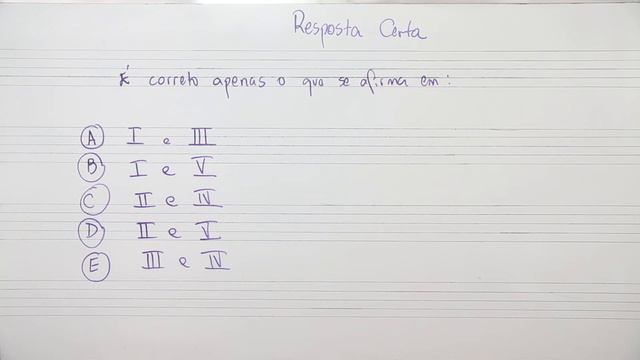 Resposta Certa
É correto apenas o que se afirma em:
A I e III
B I e V
C II e IV
D II e V
E III e IV